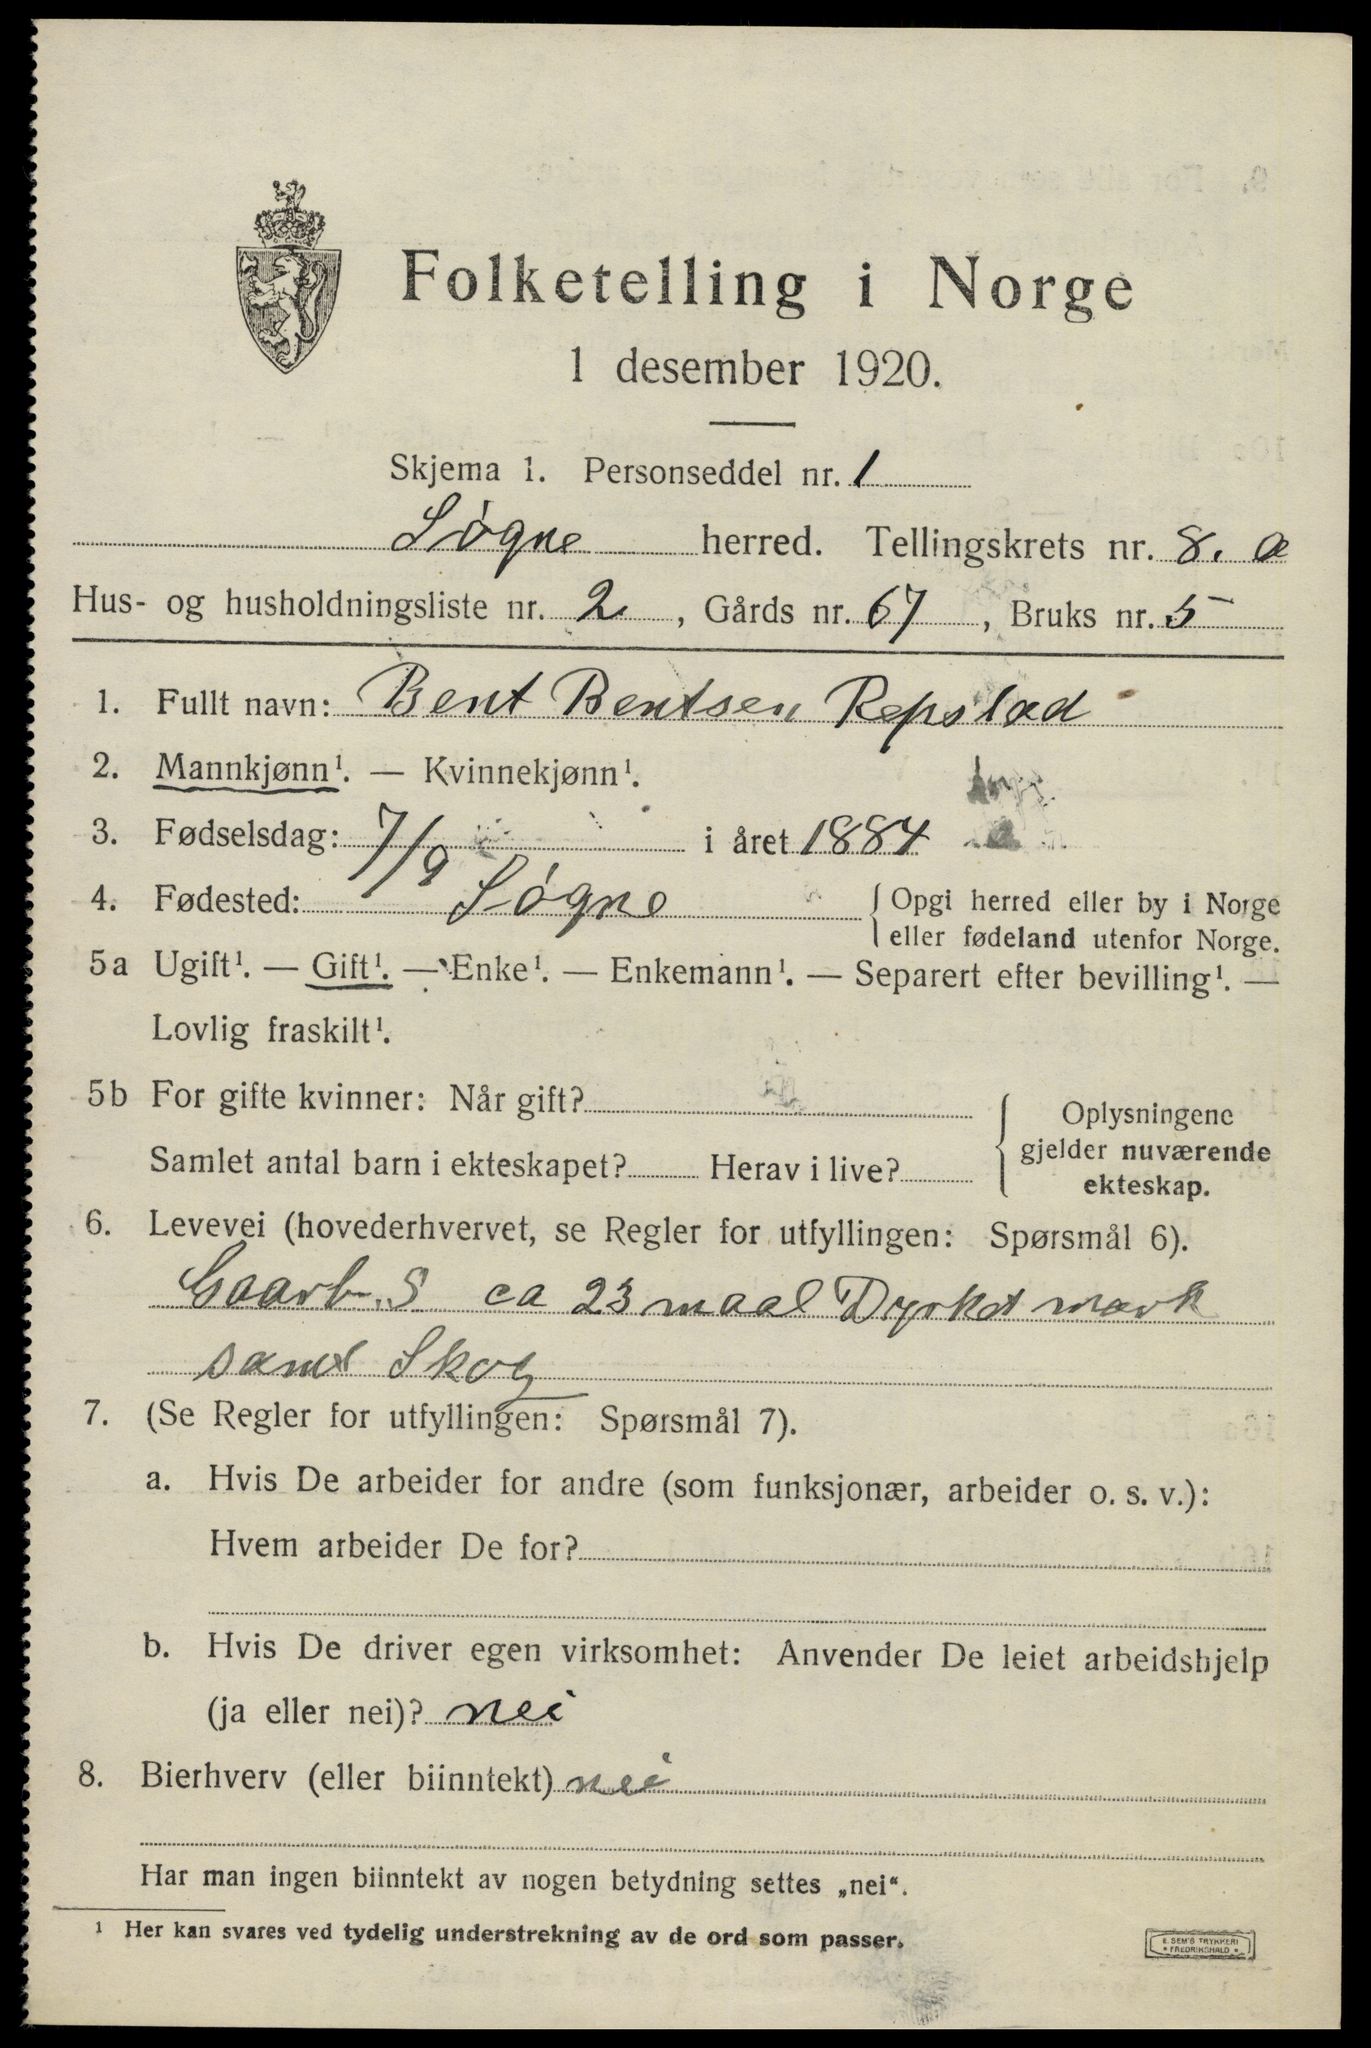 Folketelling i Norge
1 desember 1920.
Skjema 1. Personseddel nr. 1
Søgne herred. Tellingskrets nr. 8. a
Hus- og husholdningsliste nr. 2, Gårds nr. 67, Bruks nr. 5
1. Fullt navn: Bent Bentsen Repstad
2. Mannkjønn¹. — Kvinnekjønn¹.
3. Fødselsdag: 7/9 i året 1884
4. Fødested: Søgne { Opgi herred eller by i Norge
eller fødeland utenfor Norge.
5a Ugift¹. — Gift¹. — Enke¹. — Enkemann¹. — Separert efter bevilling¹. —
Lovlig fraskilt¹.
5b For gifte kvinner: Når gift?
Samlet antal barn i ekteskapet? Herav i live?
{ Oplysningene
gjelder nuværende
ekteskap.
6. Levevei (hovederhvervet, se Regler for utfyllingen: Spørsmål 6).
Gaarb. S ca 23 maal Dyrket mark
samt Skog
7. (Se Regler for utfyllingen: Spørsmål 7).
a. Hvis De arbeider for andre (som funksjonær, arbeider o. s. v.):
Hvem arbeider De for?
b. Hvis De driver egen virksomhet: Anvender De leiet arbeidshjelp
(ja eller nei)? nei
8. Bierhverv (eller biinntekt) nei
Har man ingen biinntekt av nogen betydning settes „nei“.
¹ Her kan svares ved tydelig understrekning av de ord som passer.
E. SEM'S TRYKKERI
FREDRIKSHALD